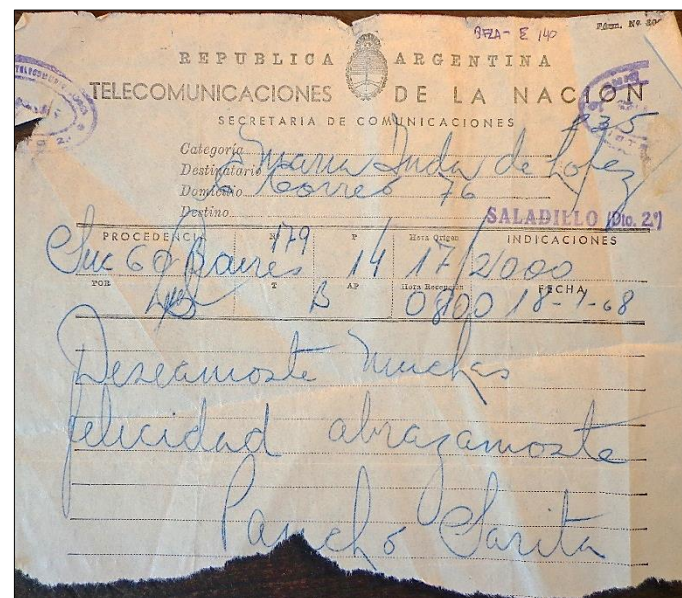 BFZA - E 140
REPUBLICA ARGENTINA
TELECOMUNICACIONES DE LA NACION
SECRETARIA DE COMUNICACIONES
Categoría
Destinatario Maria Inda de Lopez
Domicilio Correo 76
Destino SALADILLO (Dto. 2º)
PROCEDENCIA P Hora Origen INDICACIONES
Suc 60 Baires 179 14 17/2000
POR T AP Hora Recepción FECHA
B 0800 18-1-68
Deseamoste muchas
felicidad abrazamoste
Pancho Sarita